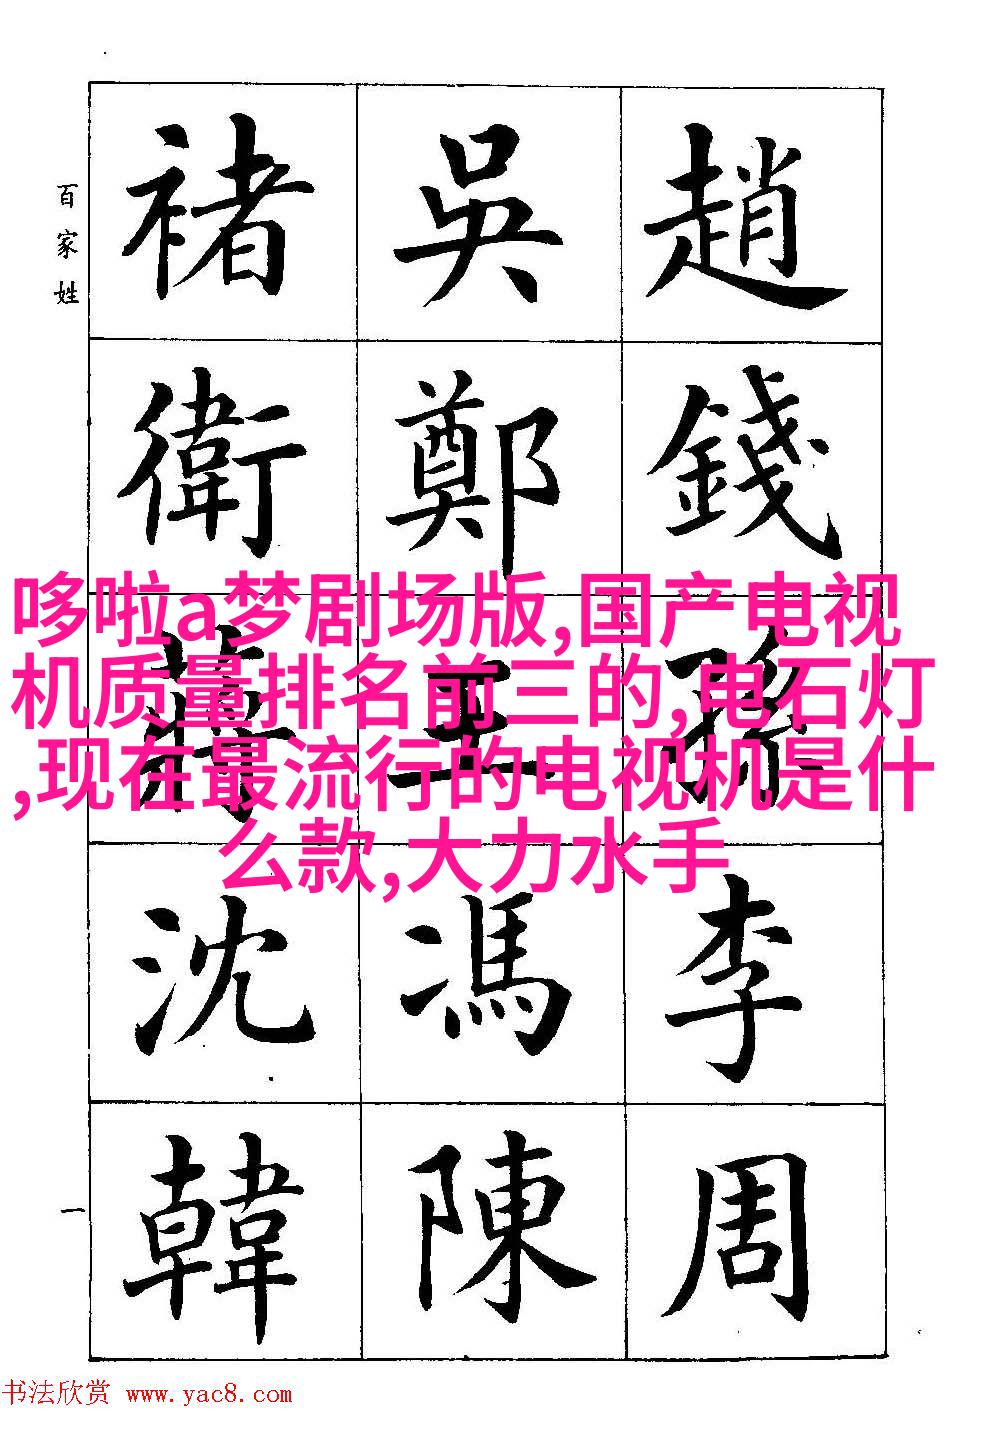 百家姓
趙錢孫李周
吳鄭王馮陳
褚衛蔣沈韓
一
哆啦a梦剧场版,国产电视
机质量排名前三的,电石灯
,现在最流行的电视机是什
么款,大力水手
书法欣赏 www.yac8.com